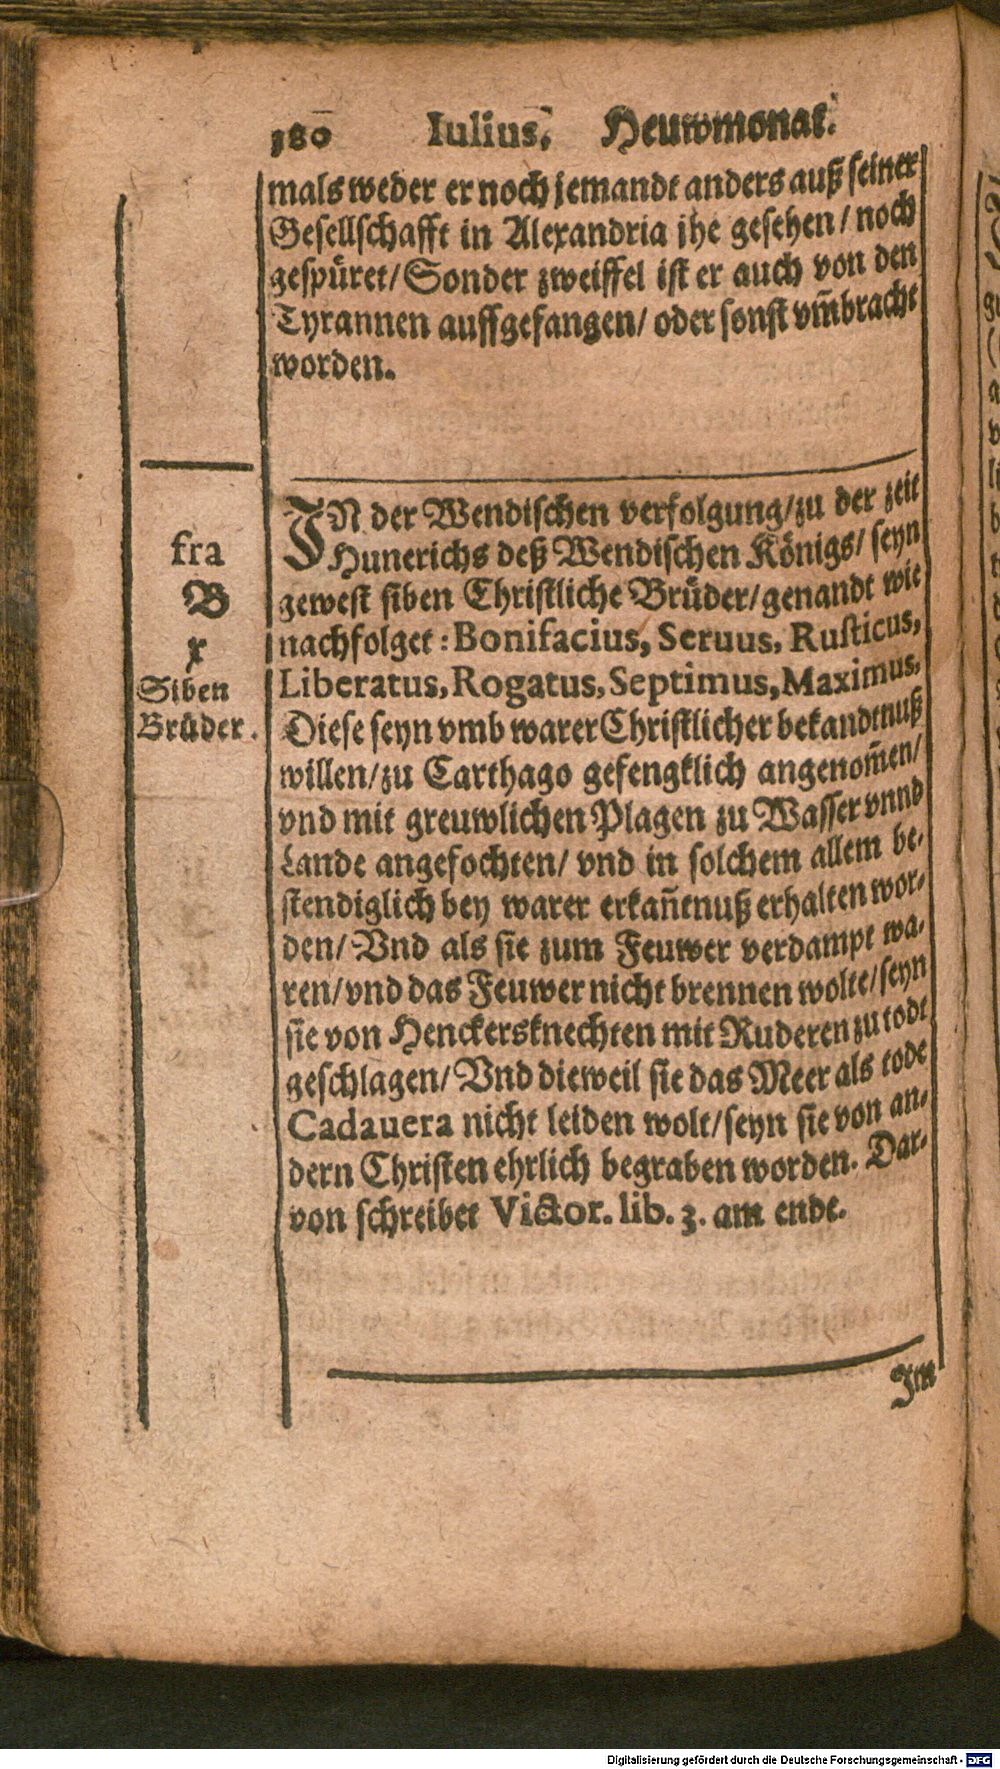 180 Iulius, Heuwmonat.
mals weder er noch jemandt anders auß seiner
Gesellschafft in Alexandria jhe gesehen / noch
gespüret / Sonder zweiffel ist er auch von den
Tyrannen auffgefangen / oder sonst vm̃bracht
worden.
fra
B
x
Siben
Brüder.
IN der Wendischen verfolgung / zu der zeit
Hunerichs deß Wendischen Königs / seyn
gewest siben Christliche Brüder / genandt wie
nachfolget : Bonifacius, Seruus, Rusticus,
Liberatus, Rogatus, Septimus, Maximus,
Diese seyn vmb warer Christlicher bekandtnuß
willen / zu Carthago gefengklich angenom̃en /
vnd mit greuwlichen Plagen zu Wasser vnnd
Lande angefochten / vnd in solchem allem be-
stendiglich bey warer erkañtnuß erhalten wor-
den / Vnd als sie zum Feuwer verdampt wa-
ren / vnd das Feuwer nicht brennen wolte / seyn
sie von Henckersknechten mit Ruderen zu todt
geschlagen / Vnd dieweil sie das Meer als tode
Cadauera nicht leiden wolt / seyn sie von an-
dern Christen ehrlich begraben worden. Dar-
von schreibet Victor. lib. 3. am ende.
Im
Digitalisierung gefördert durch die Deutsche Forschungsgemeinschaft - DFG